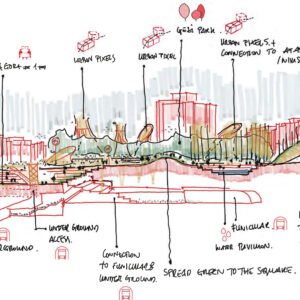 GEZI PARK.
URBAN PIXELS
URBAN PIXEL
URBAN PIXELS +
CONNECTION TO
UNDERGROUND
ACCESS.
CONNECTION
TO FUNICULAR &
UNDERGROUND.
SPREAD GREEN TO THE SQUARE.
FUNICULAR
WATER PAVILION.